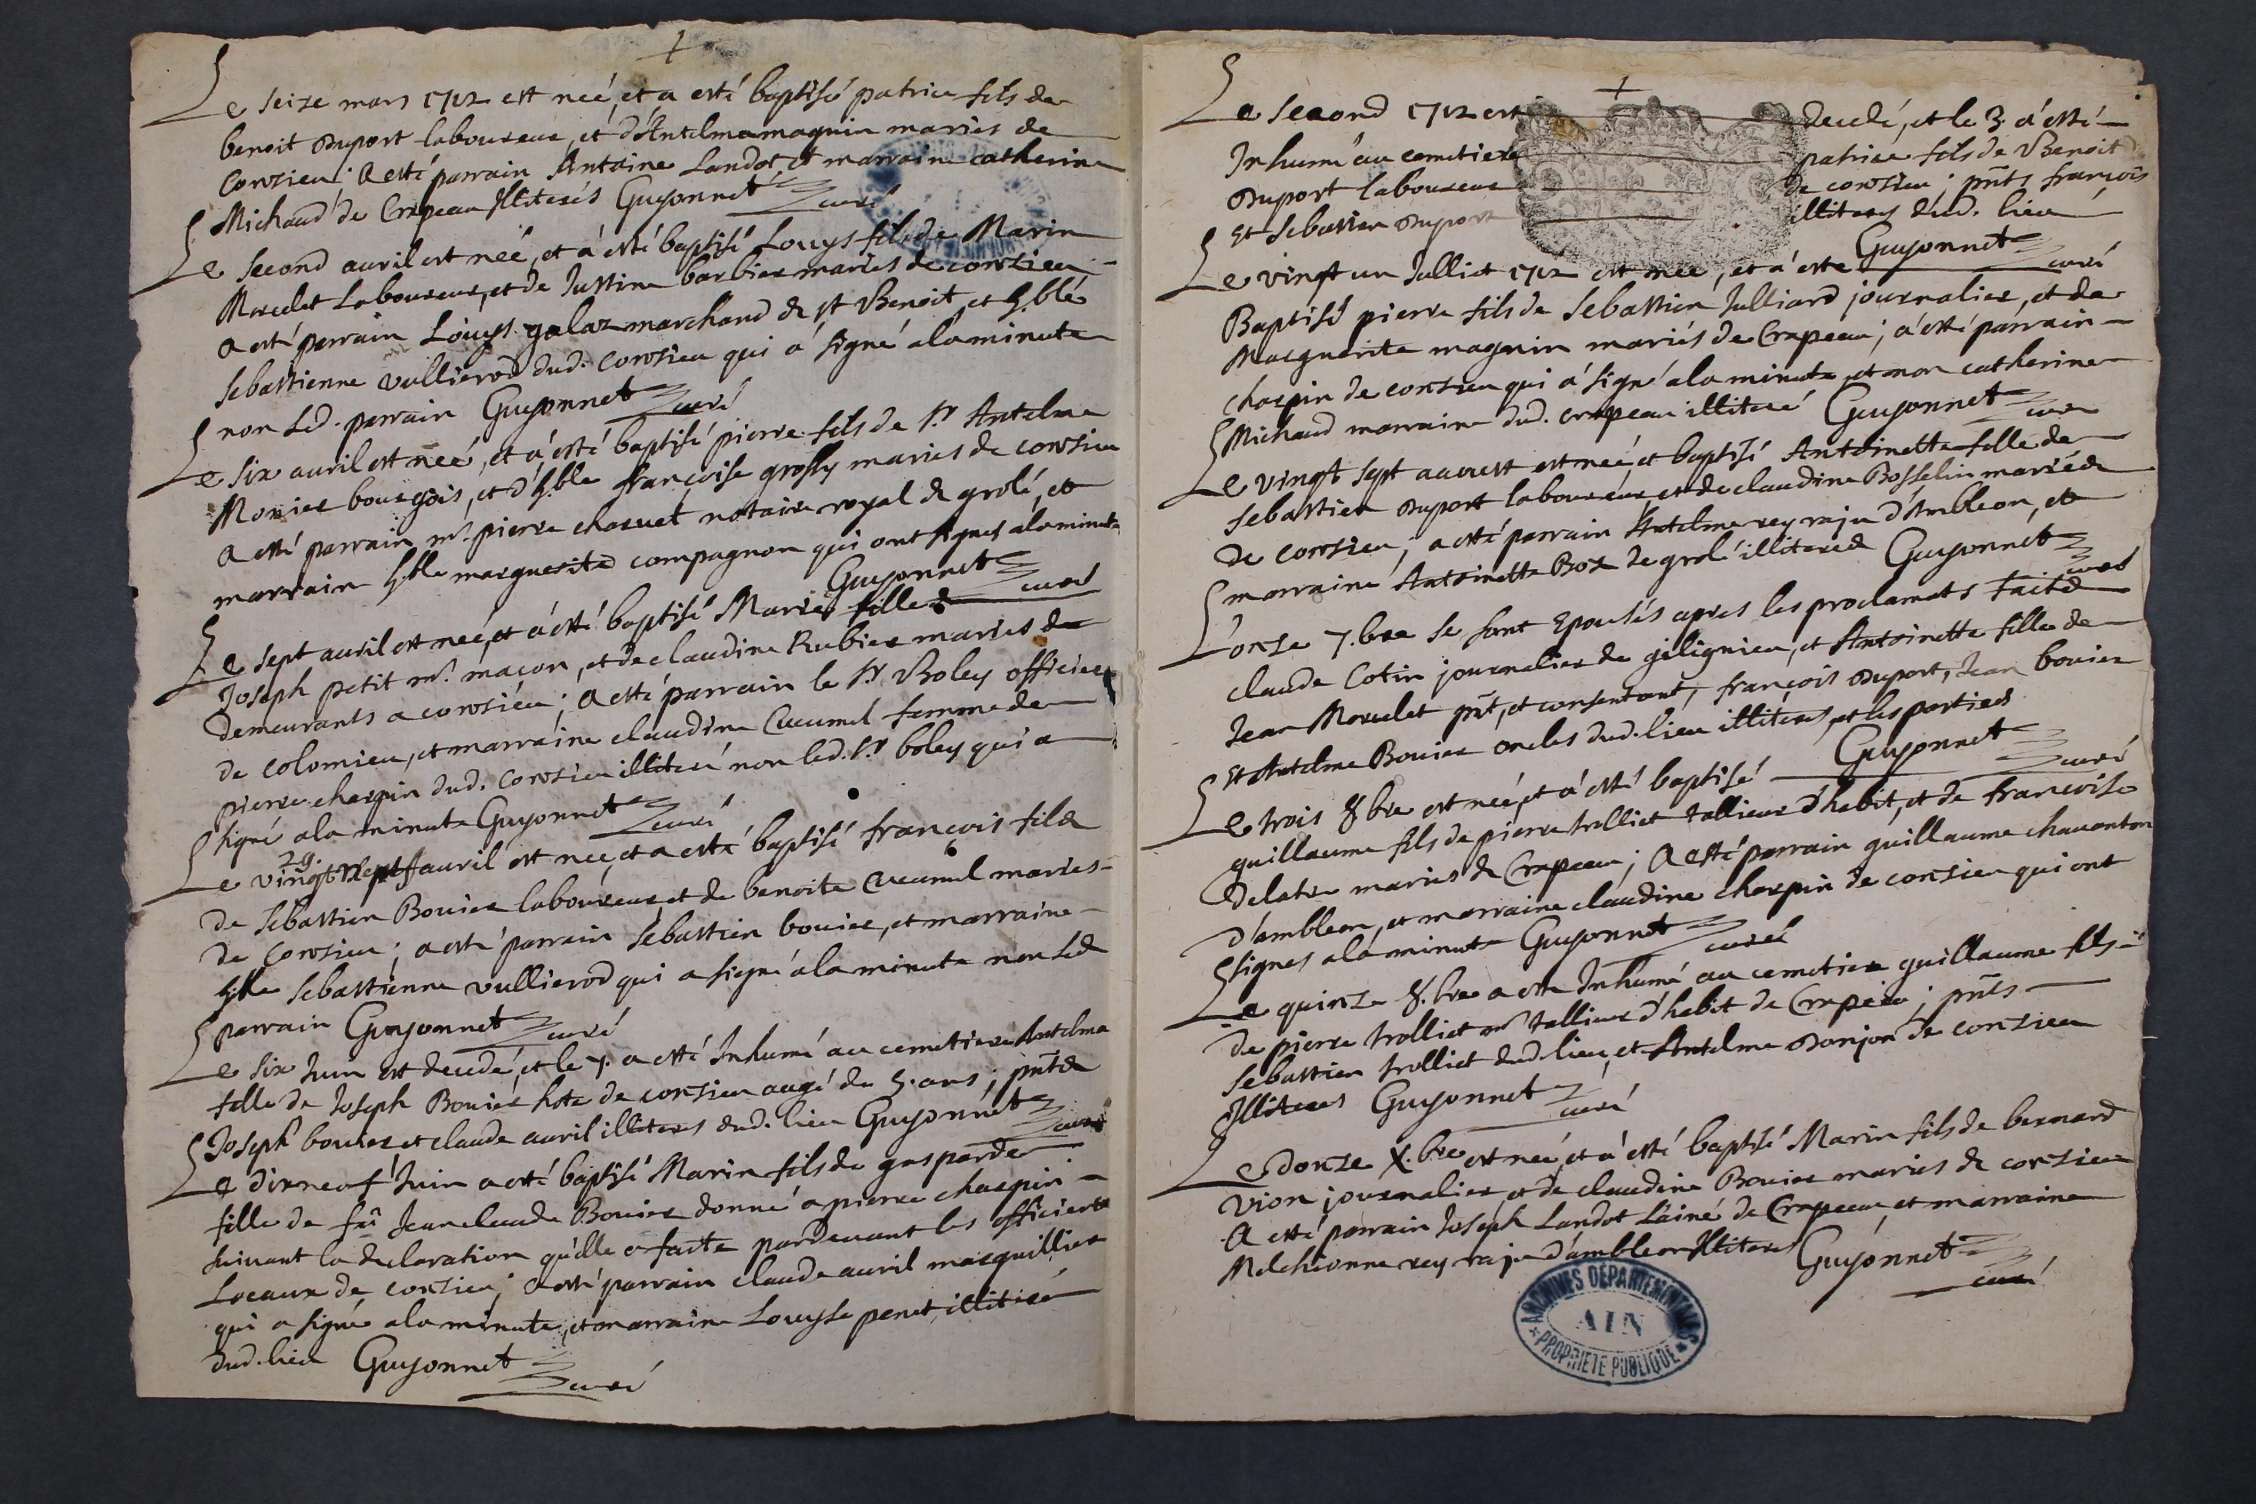 Le seize mars 1712 est neé, et a esté baptisé patrice fils de
benoit Duport laboureur, et d'Antelma magnin mariés de
Conzieu; a esté parrain Antoine Landot et marraine catherine
Michaud de Crapeau Illiterés Guyonnet curé
Le second auril est neé, et a esté baptisé Louys fils de Marin
Marcelet Laboureur, et de Justine barbier mariés de conzieu
a esté parrain Louys galaz marchand de st Benoit, et h.ble
sebastienne vullierod dud. Conzieu qui a signé ala minute
non led. parrain Guyonnet curé
Le six auril est neé, et a esté baptisé pierre fils de Sr Antelme
Monier bourgois, et d'h.ble françoise grossy mariés de conzieu
a esté parrain mr. pierre charuet notaire royal de grolé, et
marrain h.ble marguerite compagnon qui ont signés ala minute
Guyonnet curé
Le sept auril est neé, et a esté baptisé Marie fille de
Joseph petit mr. maçon, et de claudine Rubier mariés de
demeurants a conzieu; a esté parrain le Sr Boley officier
de colomieu, et marraine claudine Cucumel femme de
pierre charpin dud. Conzieu illiteré non led. Sr boley qui a
signé ala minute Guyonnet curé
29.
Le vingt auril est neé, et a esté baptisé françois fils
de Sebastien Bouier laboureur, et de benoite Cucumel mariés
de Conzieu; a esté parrain sebastien bouier, et marraine
h.ble sebastienne vullierod qui a signé ala minute non led.
parrain Guyonnet curé
Le six Juin est decedé, et le 7. a esté Inhumé au cemetiere Antelma
fille de Joseph Bouier hote de conzieu augé de 5. ans; pnts
Joseph bouier et claude auril illiteres dud. lieu Guyonnet curé
Le dixneuf Juin a esté baptisé Marin fils de gasparde
fille de fû Jeanclaude Bouier donné a pierre charpin
suiuant la declaration qu'elle a faite pardeuant les officiers
Locaux de conzieu; a esté parrain claude auril marguillier
qui a signé ala minute, et marraine Louyse penet, illiteré
dud. lieu Guyonnet curé
Le second 1712 est decedé, et le 3. a esté
Inhumé au cemetiere patrice fils de Benoit
Duport laboureur de conzieu; pnts françois
et Sebastien Duport illiteres dud. lieu
Guyonnet curé
Le vingt un Julliet 1712 est neé, et a esté
Baptisé pierre fils de Sebastien Julliard journalier, et de
Marguerite magnin mariés de Crapeau; a esté parrain
charpin de conzieu qui a signé ala minute, et non catherine
Michaud marraine dud. crapeau illiteré Guyonnet curé
Le vingt sept aoust est neé, et baptisé Antoinette fille de
Sebastien Duport laboureur, et de claudine Bosselin mariés
de conzieu; a esté parrain Antelme rey raju d'Ambleon, et
marraine Antoinette Box de grolé illiteres Guyonnet curé
L'onze 7.bre se sont Epousés apres les proclamats faits
claude Cotin journalier de gelignieu, et Antoinette fille de
Jean Marcelet pnt, et consentant, françois Duport, Jean bouier
et Antelme Bouier oncles dud. lieu illiteres, et les parties
Guyonnet curé
Le trois 8.bre est neé, et a esté baptisé
guillaume fils de pierre trolliet tallieur d'habit, et de françoise
Delatre mariés de Crapeau; a esté parrain guillaume chauanton
d'ambleon, et marraine claudine charpin de conzieu qui ont
signes ala minute Guyonnet curé
Le quinze 8.bre a esté Inhumé au cemetiere guillaume fils
de pierre trolliet mr tallieur d'habit de Crapeau; pnts
Sebastien trolliet dud. lieu, et Antelme Donjon de conzieu
Illiteres Guyonnet curé
Le donze X.bre est neé, et a esté baptisé Marin fils de bernard
Vion journalier, et de claudine Bouier mariés de conzieu
a esté parrain Joseph Landot L'ainé de Crapeau, et marraine
Melchionne rey raju d'ambleon Illiteres Guyonnet curé
ARCHIVES DÉPARTEMENTALES
AIN
* PROPRIETE PUBLIQUE *